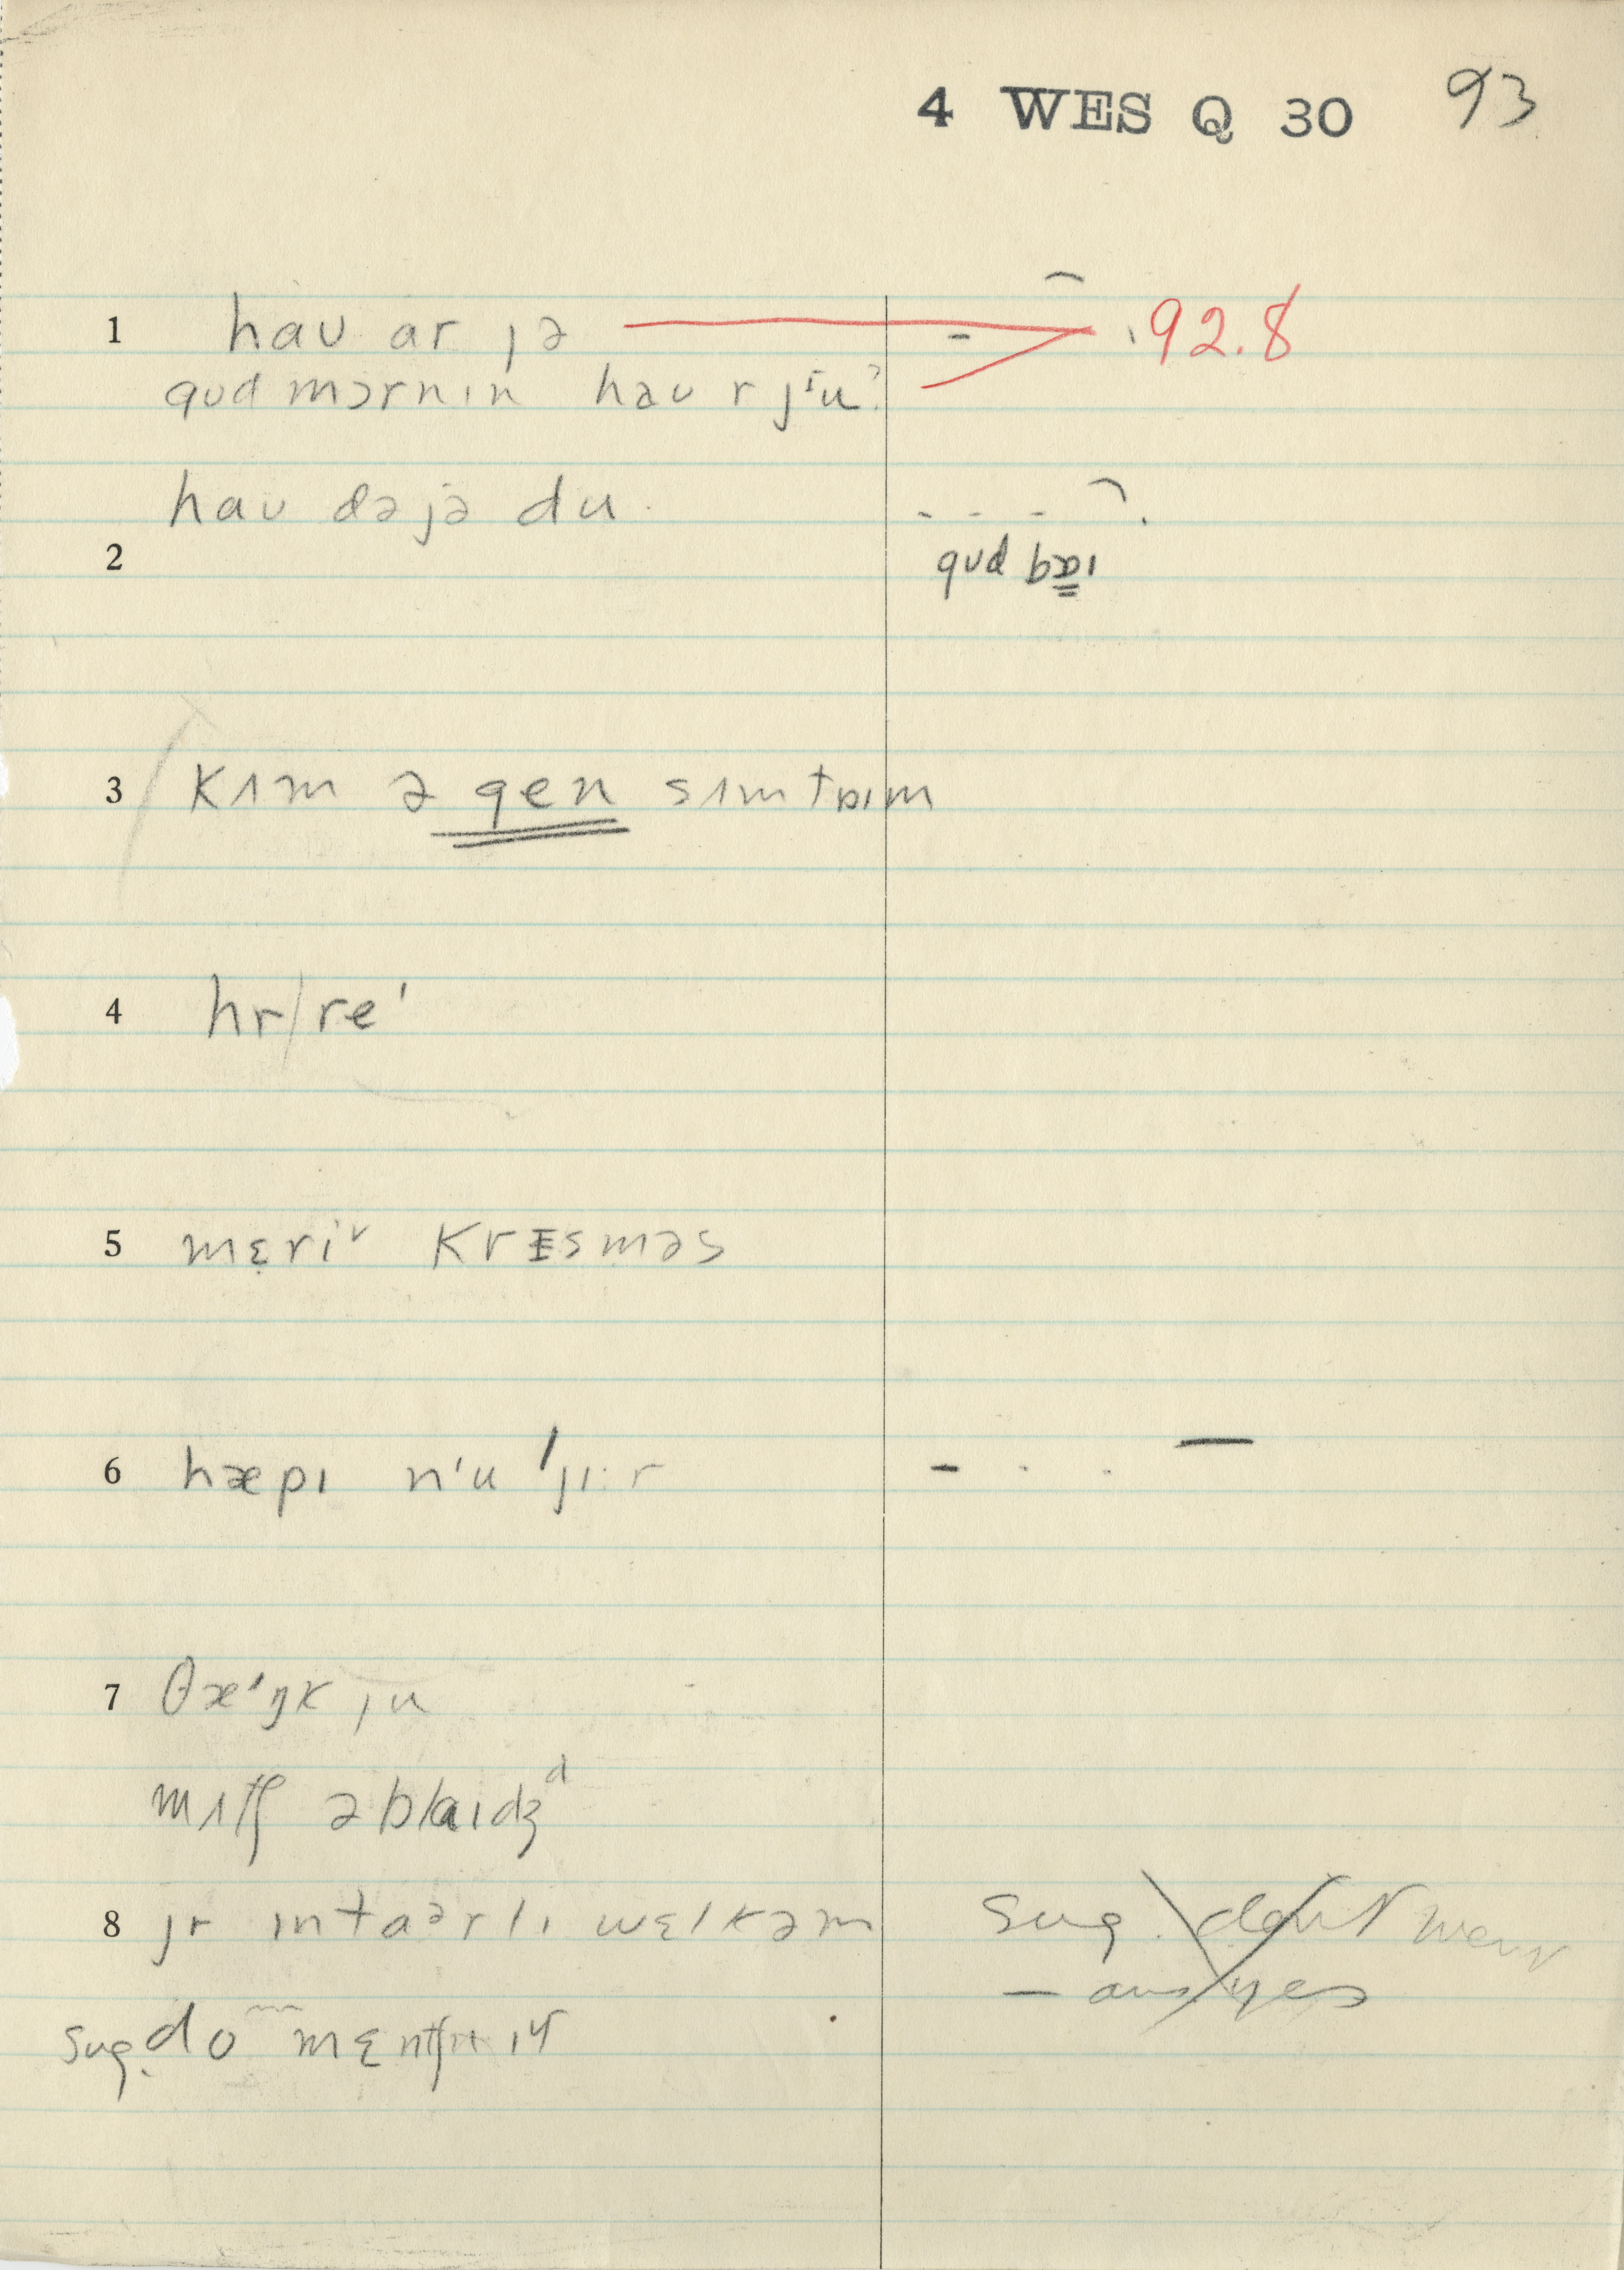 4 WES Q 30 93
1 haʊ ar jə 92.8
gʊd mɔrnɪn haʊ r jᶦu?
haʊ dəjə du
2 gʊd bɒɪ
3 kʌm ə gen sʌmtɒɪm
4 hr/re'
5 mɛ̣riᵛ krɪsməs
6 hæpɪ nᶦu ˈjɪ:r
7 θæᶦŋk ju
mʌtʃ əblaɪdʒᵈ
8 jr ɪntaᵊrlɪ wɛlkəm sug. don't
— ans yes
sug. do mɛntʃn ɪt